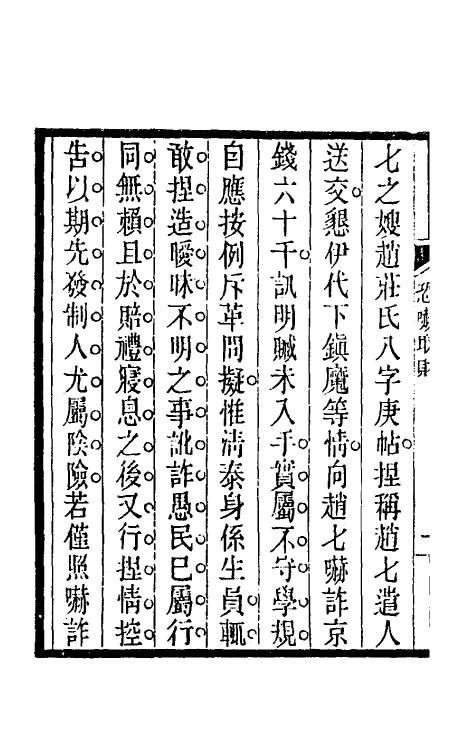 七之嫂趙莊氏八字庚帖捏稱趙七遣人
送交懇伊代下鎭魔等情向趙七嚇詐京
錢六十千訊明贓未入手實屬不守學規
自應按例斥革問擬惟淸泰身係生員輒
敢捏造曖昧不明之事訛詐愚民已屬行
同無賴且於賠禮寢息之後又行捏情控
告以期先發制人尤屬陰險若僅照嚇詐